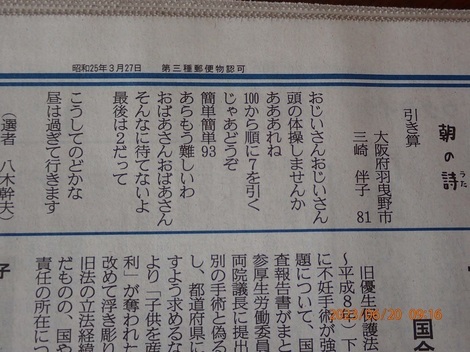 昭和25年3月27日 第三種郵便物認可
朝の詩
うた
引き算
大阪府羽曳野市
三崎 伴子 81
おじいさんおじいさん
頭の体操しませんか
ああああれね
100から順に7を引く
じゃあどうぞ
簡単簡単93
あらもう難しいわ
おばあさんおばあさん
そんなに待てないよ
最後は2だって
こうしてのどかな
昼は過ぎて行きます
(選者 八木幹夫)
国会
旧優生保護法
~平成8年)下
に不妊手術が強
題について、国
査報告書がまと
参厚生労働委員
両院議長に提出
別の手術と偽る
し、都道府県に
すよう求めるな
より「子供を産
利」が奪われた
改めて浮き彫り
旧法の立法経緯
だものの、国や
責任の所在につ
子
2023/06/20 09:16